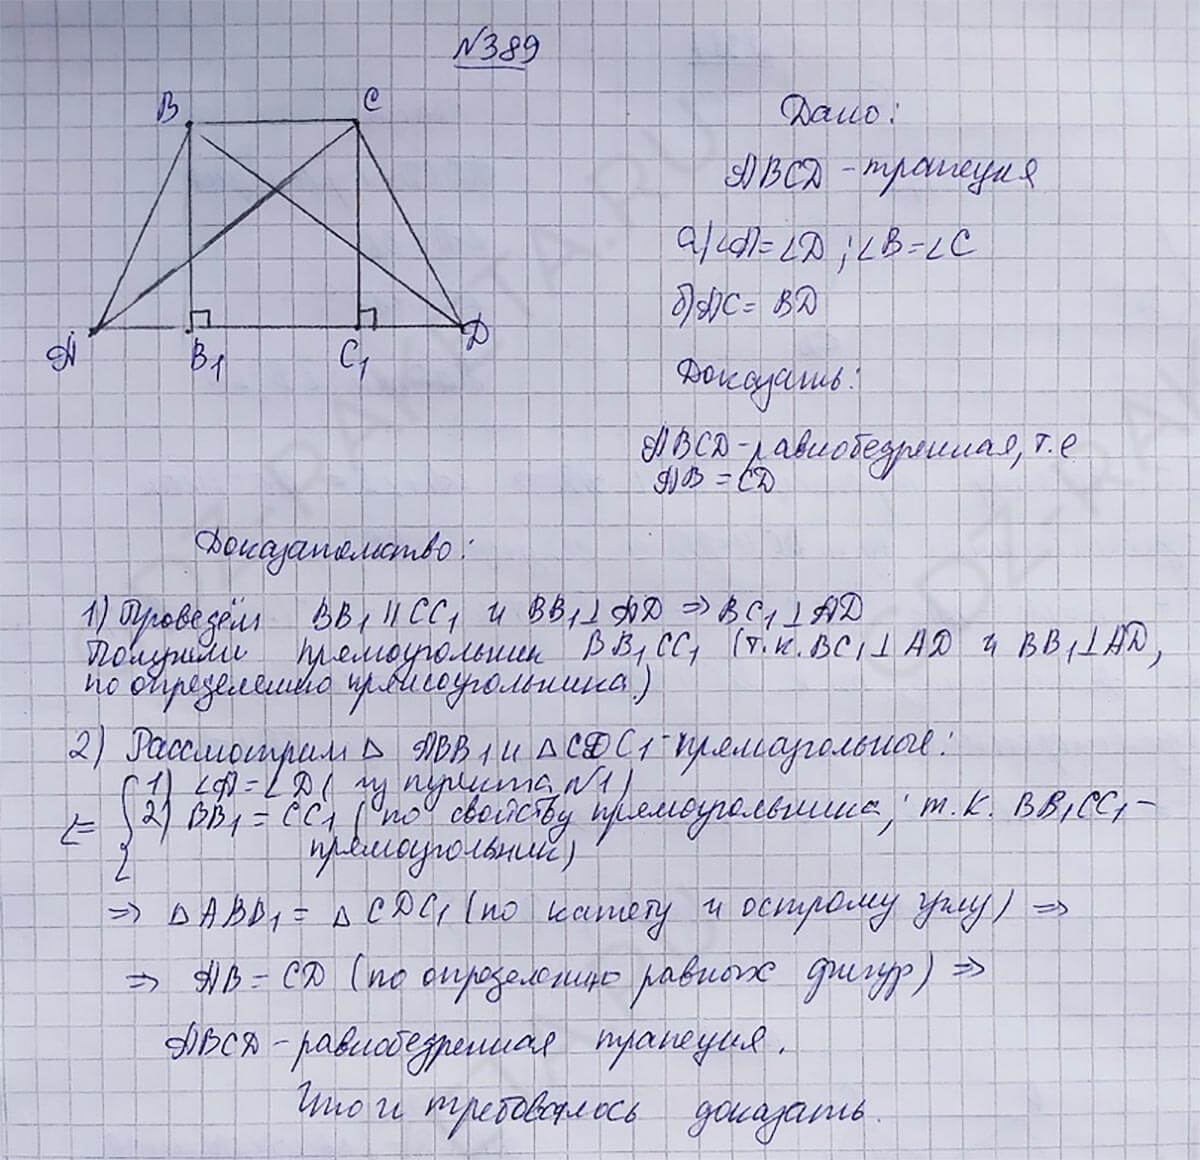 №389
B C
A B₁ C₁ D
Дано:
ABCD - трапеция
а) ∠A = ∠D ; ∠B = ∠C
б) AC = BD
Доказать:
ABCD - равнобедренная, т.е
AB = CD
Доказательство:
1) Проведём BB₁ || CC₁ и BB₁ ⊥ AD ⇒ BC₁ ⊥ AD
Получили прямоугольник BB₁CC₁ (т.к. BC₁ ⊥ AD и BB₁ ⊥ AD,
по определению прямоугольника.)
2) Рассмотрим △ ABB₁ и △ CDC₁ - прямоугольные:
1) ∠A = ∠D ( из пункта №1)
⇐ { 2) BB₁ = CC₁ (по свойству прямоугольника; т.к. BB₁CC₁ –
прямоугольник)
⇒ △ ABB₁ = △ CDC₁ (по катету и острому углу) ⇒
⇒ AB = CD (по определению равных фигур) ⇒
ABCD - равнобедренная трапеция.
Что и требовалось доказать.